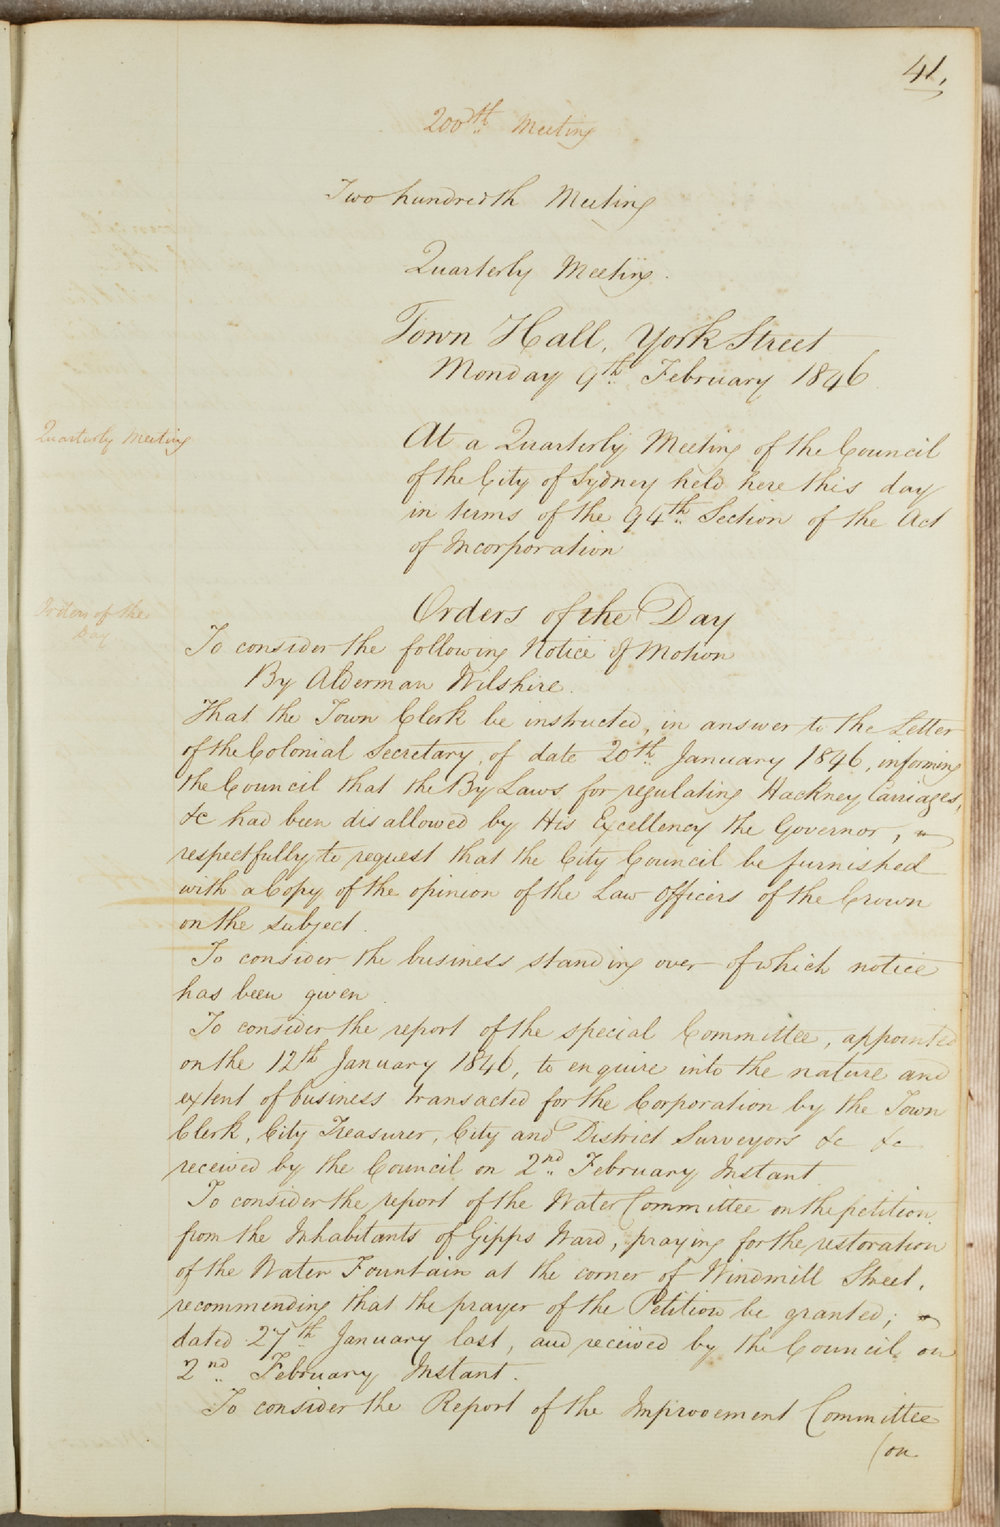 41.
200th Meeting
Two hundredth Meeting
Quarterly Meeting.
Town Hall, York Street
Monday 9th February 1846
Quarterly Meeting
At a Quarterly Meeting of the Council
of the City of Sydney held here this day
in terms of the 94th Section of the Act
of Incorporation
Orders of the Day
Orders of the
Day
To consider the following Notice of Motion
By Alderman Wilshire.
That the Town Clerk be instructed, in answer to the Letter
of the Colonial Secretary, of date 20th January 1846, informing
the Council that the By Laws for regulating Hackney Carriages,
&c had been disallowed by His Excellency the Governor,
respectfully to request that the City Council be furnished
with a Copy of the opinion of the Law Officers of the Crown
on the subject.
To consider the business standing over of which notice
has been given.
To consider the report of the special Committee, appointed
on the 12th January 1846, to enquire into the nature and
extent of business transacted for the Corporation by the Town
Clerk, City Treasurer, City and District Surveyors &c &c
received by the Council on 2nd February Instant.
To consider the report of the Water Committee on the petition
from the Inhabitants of Gipps Ward, praying for the restoration
of the Water Fountain at the corner of Windmill Street,
recommending that the prayer of the Petition be granted;
dated 27th January last, and received by the Council on
2nd February Instant.
To consider the Report of the Improvement Committee
(on